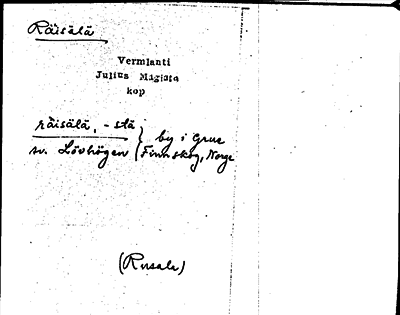 Räisälä
Vermlanti
Julius Mägiste
kop
räisälä, -stä } by i Grue
sv. Lövhögen } Finnskog, Norge
(Rusala)